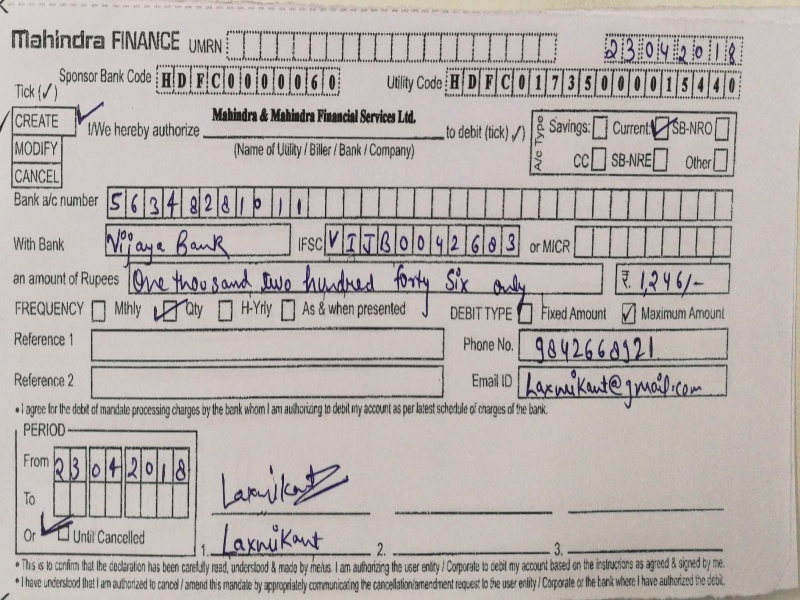 Mahindra FINANCE UMRN 23042018
Sponsor Bank Code HDFC0000060 Utility Code HDFC01735000015440
Tick (✓)
CREATE ✓ I/We hereby authorize Mahindra & Mahindra Financial Services Ltd. to debit (tick ✓) A/c Type Savings: Current ✓ SB-NRO
MODIFY (Name of Utility / Biller / Bank / Company) CC SB-NRE Other
CANCEL
Bank a/c number 56348281011
With Bank Vijaya Bank IFSC VIJB0042683 or MICR
an amount of Rupees One thousand two hundred forty Six only ₹ 1,246/-
FREQUENCY Mthly ✓ Qty H-Yrly As & when presented DEBIT TYPE Fixed Amount ✓ Maximum Amount
Reference 1 Phone No. 9842668921
Reference 2 Email ID Laxmikant@gmail.com
• I agree for the debit of mandate processing charges by the bank whom I am authorizing to debit my account as per latest schedule of charges of the bank.
PERIOD
From 23042018
To Laxmikant
Or ✓ Until Cancelled 1. Laxmikant 2. 3.
• This is to confirm that the declaration has been carefully read, understood & made by me/us. I am authorizing the user entity / Corporate to debit my account based on the instructions as agreed & signed by me.
• I have understood that I am authorized to cancel / amend this mandate by appropriately communicating the cancellation/amendment request to the user entity / Corporate or the bank where I have authorized the debit.